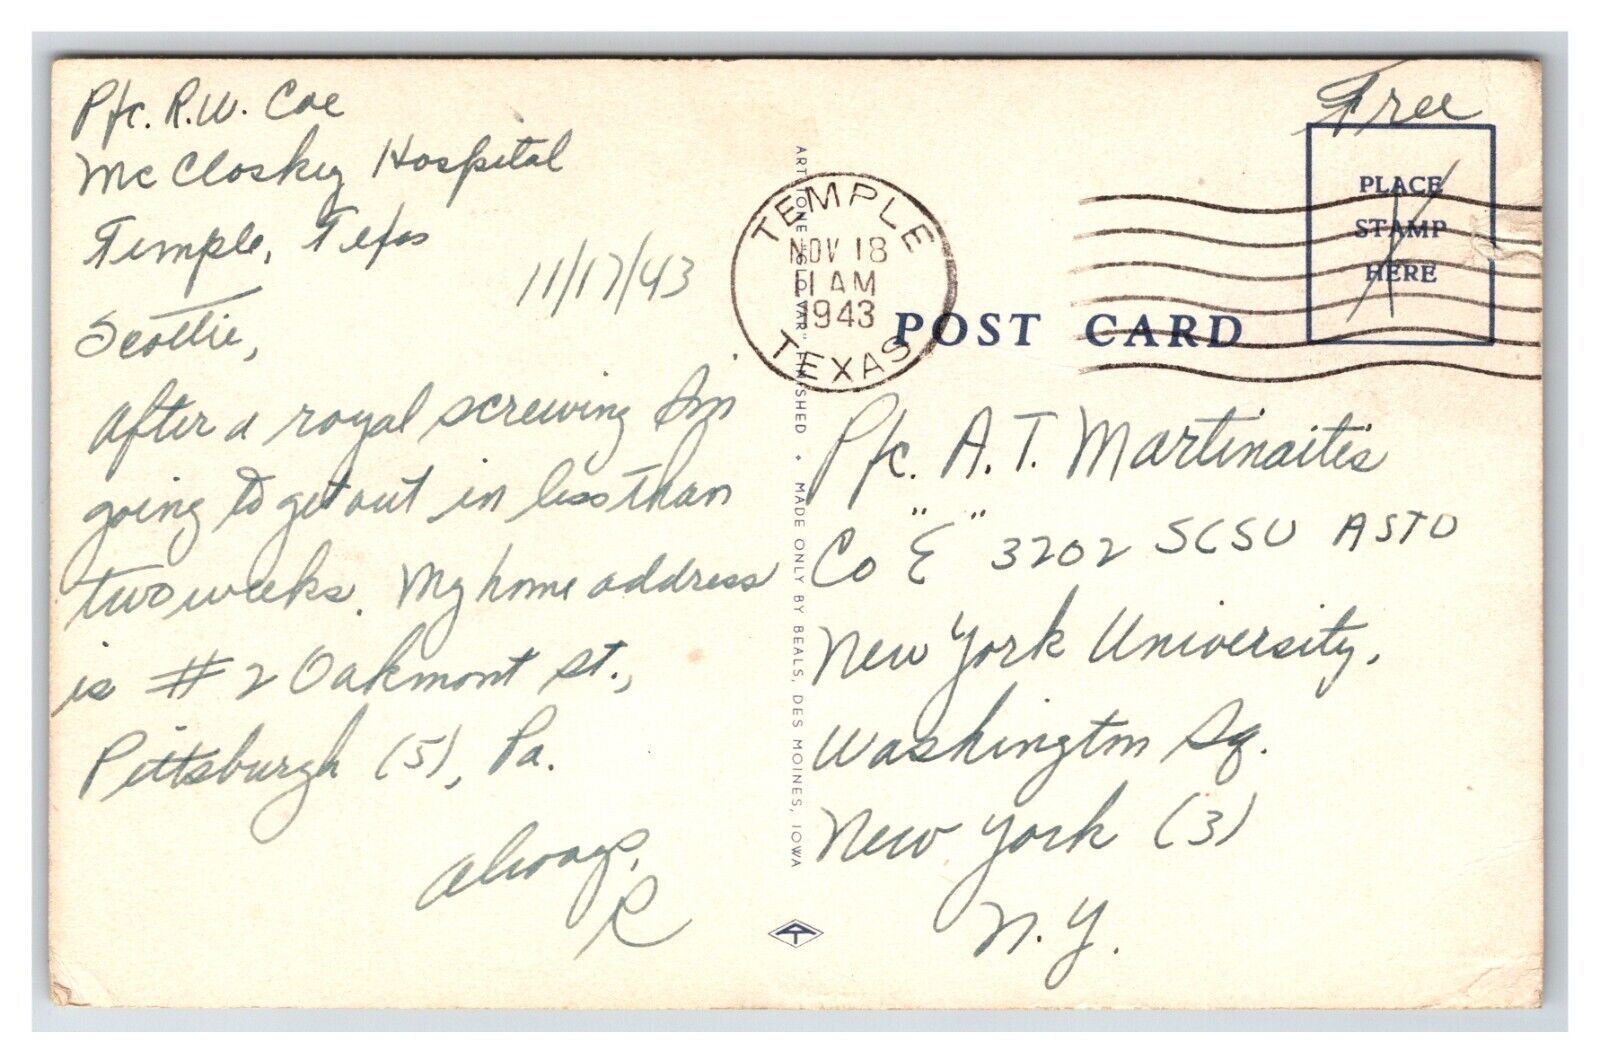 Pfc. R.W. Coe
McCloskey Hospital
Temple, Texas
11/17/43
Scottie,
After a royal screwing I'm
going to get out in less than
two weeks. My home address
is #2 Oakmont St.,
Pittsburgh (5), Pa.
Always,
R
TEMPLE
NOV 18
11 AM
1943
TEXAS
MADE ONLY BY BEALS, DES MOINES, IOWA
Free
PLACE
STAMP
HERE
POST CARD
Pfc. A.T. Martinaitis
Co "E" 3202 SCSU ASTU
New York University,
Washington Sq.
New York (3)
N.Y.